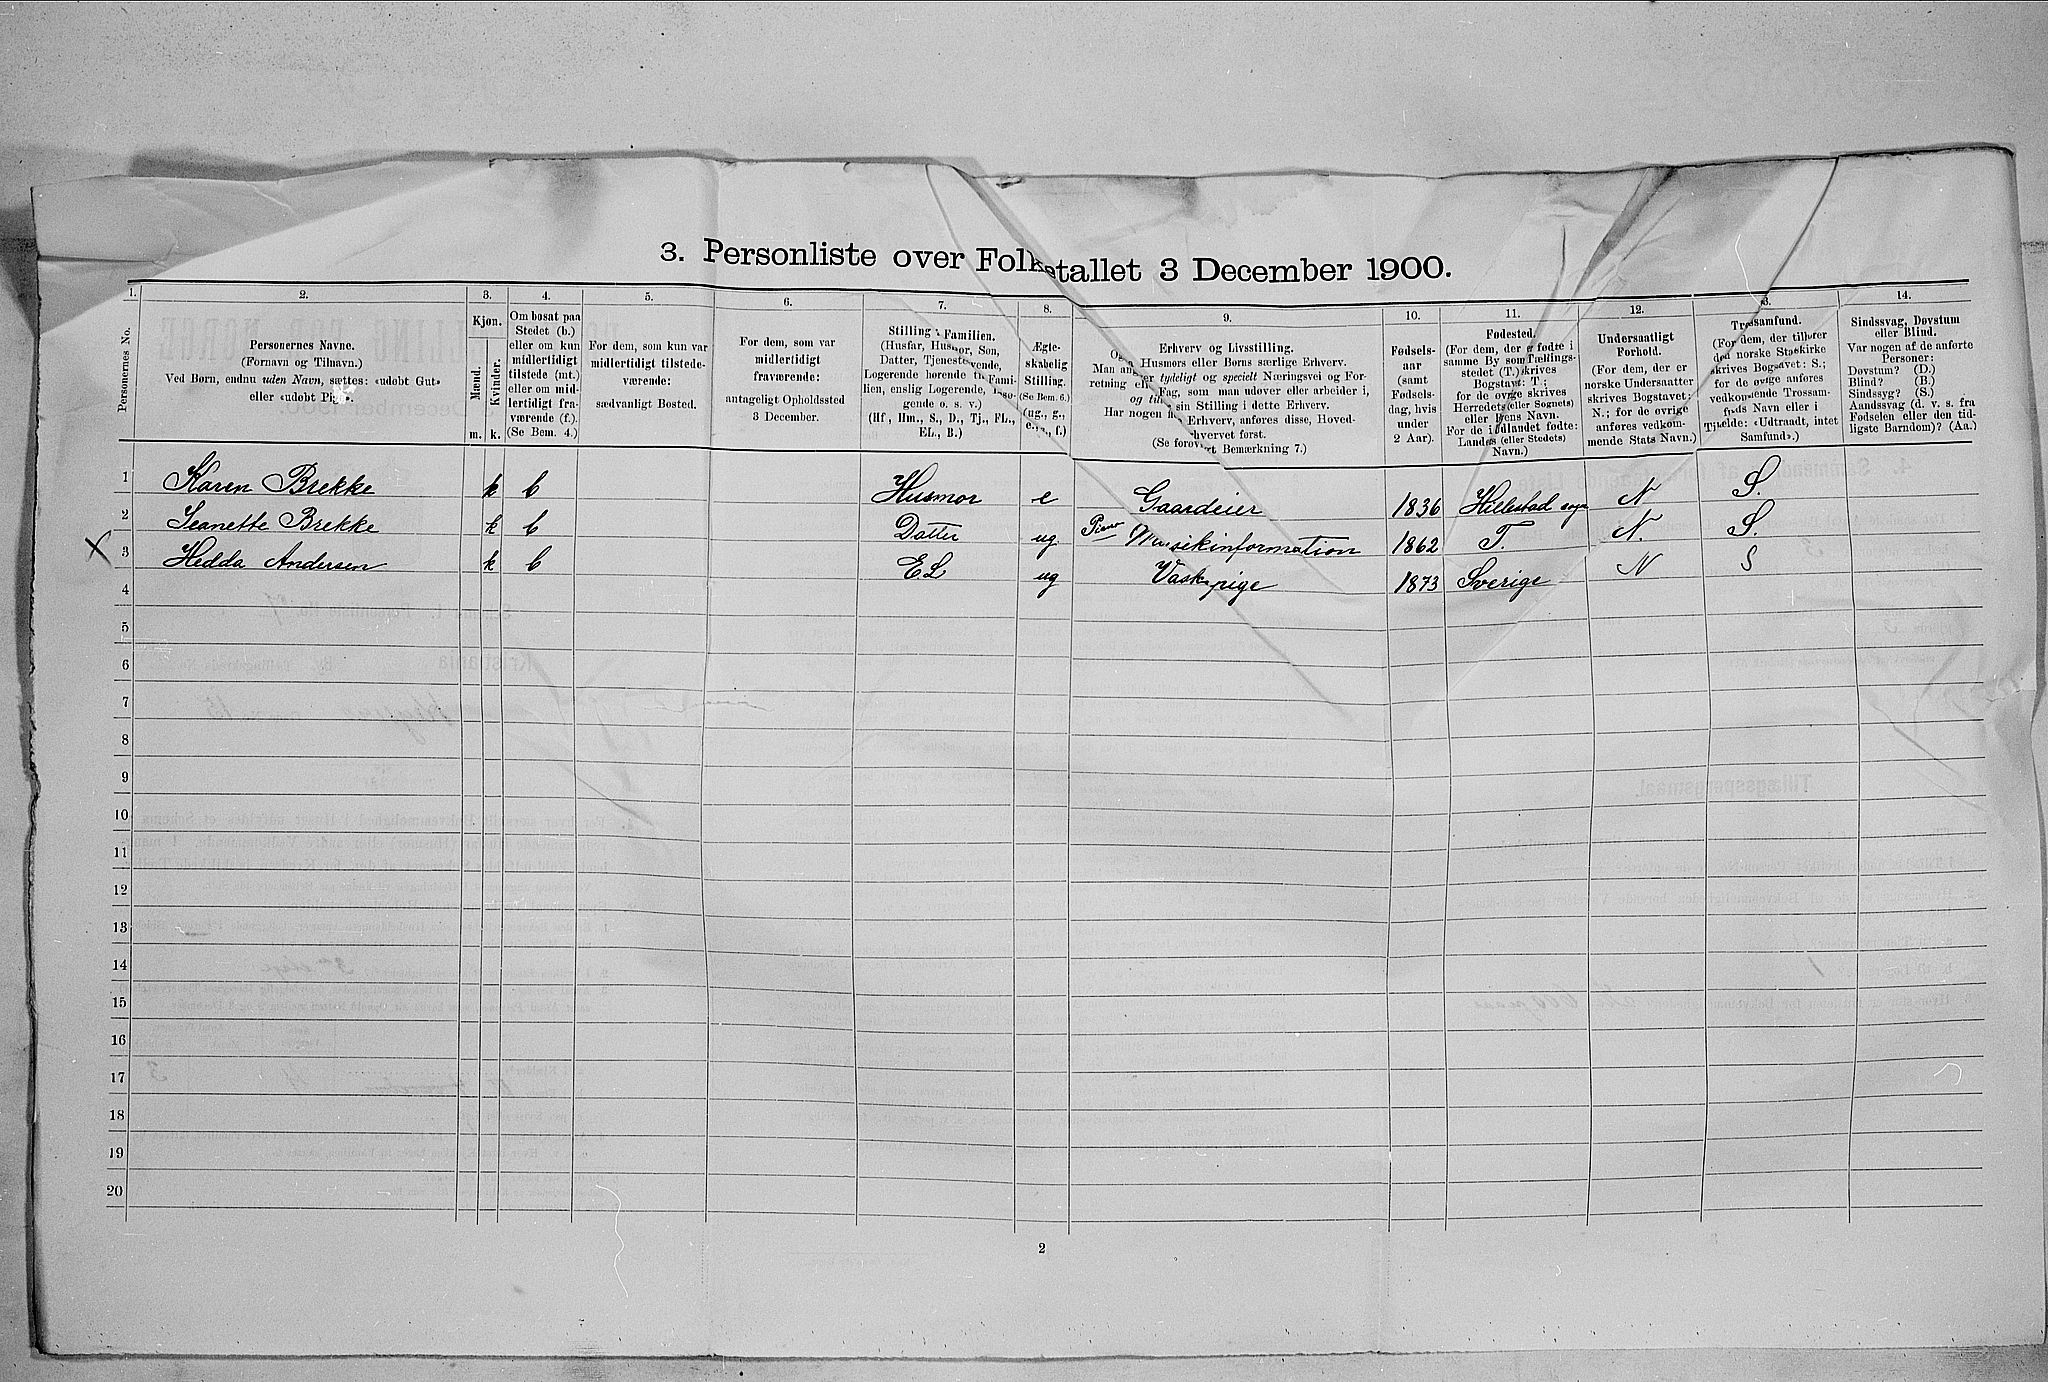 3. Personliste over Folketallet 3 December 1900.
1. 2. 3. 4. 5. 6. 7. 8. 9. 10. 11. 12. 13. 14.
Personernes No.
Personernes Navne.
(Fornavn og Tilnavn.)
Ved Børn, endnu uden Navn, sættes: «udøbt Gut»
eller «udøbt Pige».
Kjøn.
Mænd. Kvinder.
m. k.
Om bosat paa
Stedet (b.)
eller om kun
midlertidigt
tilstede (mt.)
eller om mid-
lertidigt fra-
værende (f.).
(Se Bem. 4.)
For dem, som kun var
midlertidigt tilstede-
værende:
sædvanligt Bosted.
For dem, som var
midlertidigt
fraværende:
antageligt Opholdssted
3 December.
Stilling i Familien.
(Husfar, Husmor, Søn,
Datter, Tjenestetyende,
Logerende hørende til Fami-
lien, enslig Logerende, Besø-
gende o. s. v.)
(Hf., Hm., S., D., Tj., FL.,
EL., B.)
Ægte-
skabelig
Stilling.
(Se Bem. 6.)
(ug., g.,
e., s., f.)
Erhverv og Livsstilling.
Husmors eller Børns særlige Erhverv.
tydeligt og specielt Næringsvei og For-
Fag, som man udøver eller arbeider i,
sin Stilling i dette Erhverv.
Har nogen Erhverv, anføres disse, Hoved-
hvervet først.
Bemærkning 7.)
Fødsels-
aar
(samt
Fødsels-
dag, hvis
under
2 Aar).
Fødested.
(For dem, der er fødte i
samme By som Tællings-
stedet (T.) skrives
Bogstavet: T.;
for de øvrige skrives
Herredets (eller Sognets)
eller Byens Navn.
For de i Udlandet fødte:
Landets (eller Stedets)
Navn.)
Undersaatligt
Forhold.
(For dem, der er
norske Undersaatter
skrives Bogstavet:
N.; for de øvrige
anføres vedkom-
mende Stats Navn.)
Trossamfund.
(For dem, der tilhører
den norske Statskirke
skrives Bogstavet: S.;
for de øvrige anføres
vedkommende Trossam-
funds Navn eller i
Tilfælde: «Udtraadt, intet
Samfund».)
Sindssvag, Døvstum
eller Blind.
Var nogen af de anførte
Personer:
Døvstum? (D.)
Blind? (B.)
Sindssyg? (S.)
Aandssvag (d. v. s. fra
Fødselen eller den tid-
ligste Barndom)? (Aa.)
1 Karen Brekke k b Husmor e Gaardeier 1836 Hillestad sogn N S.
2 Jeanette Brekke k b Datter ug Piano Musikinformation 1862 T. N. S.
X 3 Hedda Andersen k b EL ug Vaskepige 1873 Sverige N S
4
5
6
7
8
9
10
11
12
13
14
15
16
17
18
19
20
2